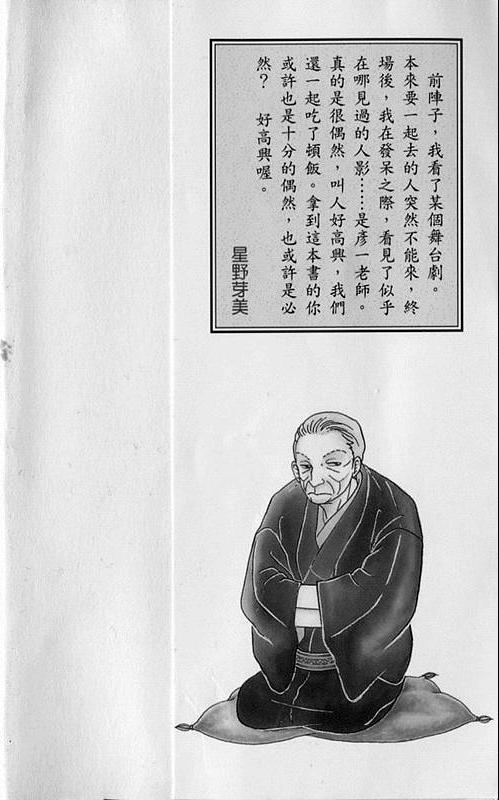 前陣子，我看了某個舞台劇。
本來要一起去的人突然不能來，終
場後，我在發呆之際，看見了似乎
在哪見過的人影……是彥一老師。
真的是很偶然，叫人好高興，我們
還一起吃了頓飯。拿到這本書的你
或許也是十分的偶然，也或許是必
然？　好高興喔。
星野芽美